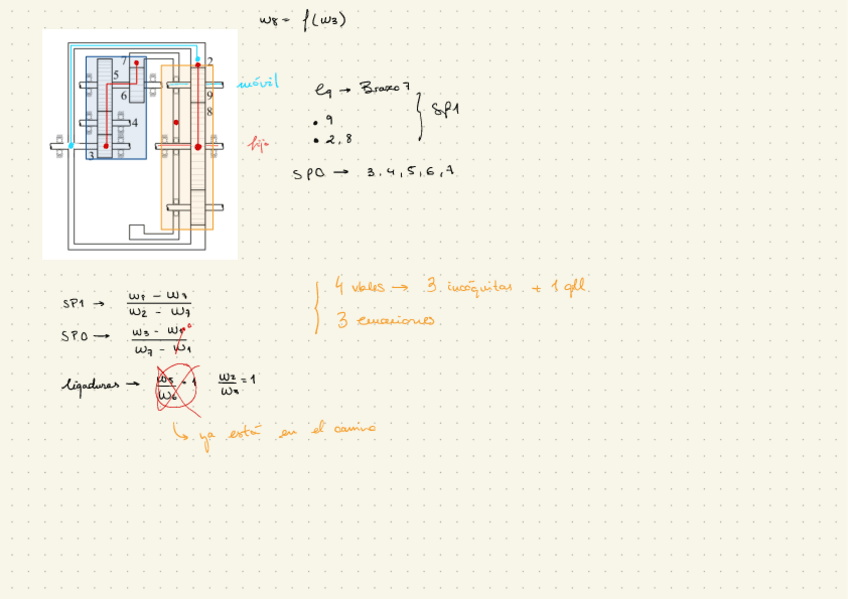 ω8 = f(ω3)
7
2
5
6
9
8
4
3
móvil
fijo
e9 → Brazo 7
• 9
• 2,8
SP1
SP0 → 3,4,5,6,7
SP1 → ω8 - ω7 / ω2 - ω7
SP0 → ω3 - ω1 0 / ω7 - ω1
ligaduras → ω5 / ω6 = 1 ω2 / ω3 = 1
↳ ya está en el camino
4 vbles → 3 incógnitas + 1 gdl.
3 ecuaciones